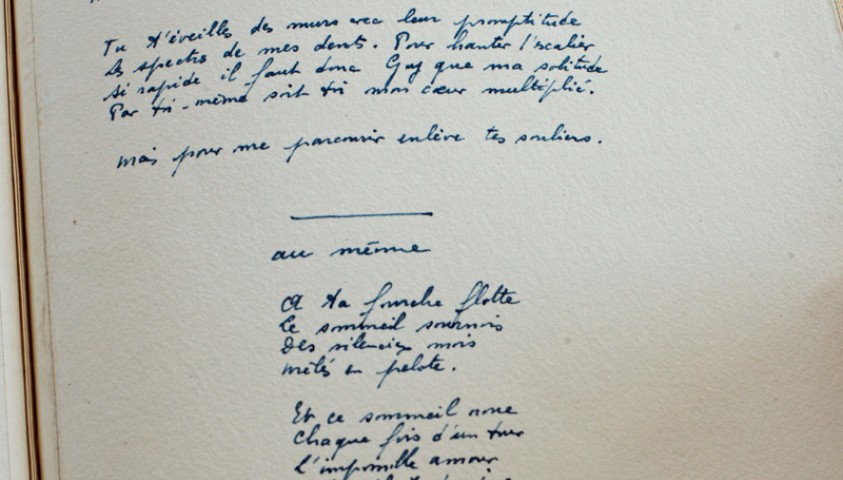 Tu t'éveilles des murs avec leur promptitude
Le spectre de mes dents. Pour hanter l'escalier
Si rapide il faut donc Guy que ma solitude
Par toi-même soit toi mon cœur multiplié.
Mais pour me parcourir enlève tes souliers.
au même
A ta fourche flotte
Le sommeil sournois
Des silencieux mois
Mêlés en pelote.
Et ce sommeil noue
Chaque fois d'un tour
L'impossible amour